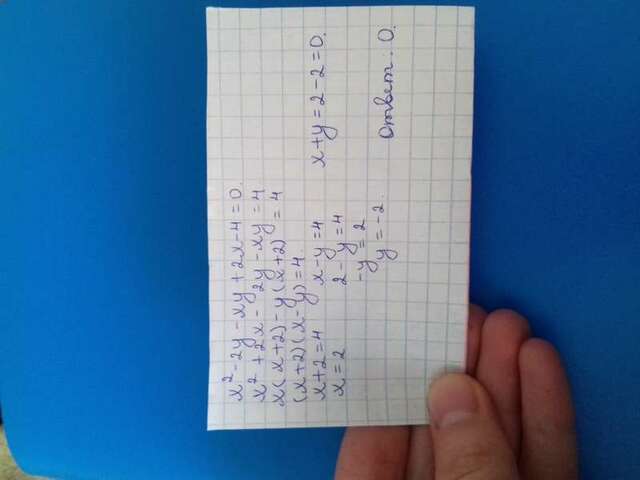 x² - 2y - xy + 2x - 4 = 0.
x² + 2x - 2y - xy = 4
x(x+2) - y(x+2) = 4
(x+2)(x-y) = 4.
x+2=4 x-y=4 x+y=2-2=0.
x=2 2-y=4
-y=2
y=-2. Ответ: 0.